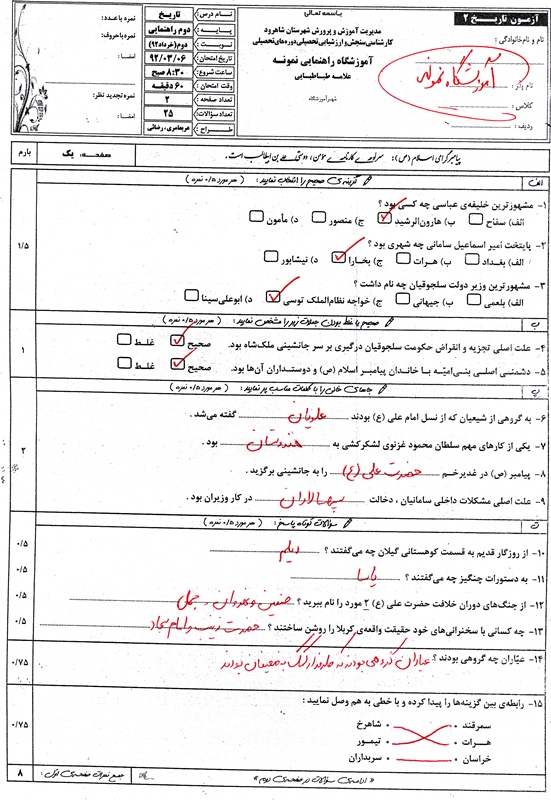 باسمه تعالی
آزمون تاریخ ۲
نام و نام‌خانوادگی :
نام پدر :
کلاس :
ردیف :
آموزشگاه نمونه
مدیریت آموزش و پرورش شهرستان شاهرود
کارشناسی سنجش و ارزشیابی تحصیلی دوره‌های تحصیلی
آموزشگاه راهنمایی نمونه
علامه طباطبایی
مهر آموزشگاه
نام درس : تاریخ
پایه : دوم راهنمایی
نوبت : دوم (خرداد۹۲)
تاریخ امتحان : ۹۲/۰۳/۰۶
ساعت شروع : ۸:۳۰ صبح
وقت امتحان : ۶۰ دقیقه
تعداد صفحه : ۲
تعداد سؤالات : ۲۵
طراح : عربعامری، رضائی
نمره با عدد :
نمره با حروف :
امضا :
نمره تجدید نظر :
امضا :
پیامبر گرامی اسلام (ص) : علی بن ابیطالب است.
صفحه یک
بارم
الف
گزینه‌ی صحیح را انتخاب نمایید : (هر مورد ۰/۵ نمره)
۱- مشهورترین خلیفه‌ی عباسی چه کسی بود ؟
الف) سفاح ب) هارون‌الرشید ج) منصور د) مأمون
۲- پایتخت امیر اسماعیل سامانی چه شهری بود ؟
الف) بغداد ب) هرات ج) بخارا د) نیشابور
۳- مشهورترین وزیر دولت سلجوقیان چه نام داشت ؟
الف) بلعمی ب) جیهانی ج) خواجه نظام‌الملک توسی د) ابوعلی‌سینا
۱/۵
ب
صحیح یا غلط بودن جملات زیر را مشخص نمایید : (هر مورد ۰/۵ نمره)
۴- علت اصلی تجزیه و انقراض حکومت سلجوقیان درگیری بر سر جانشینی ملک‌شاه بود. صحیح غلط
۵- دشمنی اصلی بنی‌امیّه با خاندان پیامبر اسلام (ص) و دوستداران آن‌ها بود. صحیح غلط
۱
پ
جاهای خالی را با کلمات مناسب پر نمایید : (هر مورد ۰/۵ نمره)
۶- به گروهی از شیعیان که از نسل امام علی (ع) بودند علویان گفته می‌شد .
۷- یکی از کارهای مهم سلطان محمود غزنوی لشکرکشی به هندوستان بود .
۸- پیامبر (ص) در غدیرخم حضرت علی (ع) را به جانشینی برگزید .
۹- علت اصلی مشکلات داخلی سامانیان ، دخالت سپهسالاران در کار وزیران بود .
۲
ت
سؤالات کوتاه پاسخ : (هر مورد ۰/۵ نمره)
۱۰- از روزگار قدیم به قسمت کوهستانی گیلان چه می‌گفتند ؟ دیلم
۰/۵
۱۱- به دستورات چنگیز چه می‌گفتند ؟ یاسا
۰/۵
۱۲- از جنگ‌های دوران خلافت حضرت علی (ع) ۲ مورد را نام ببرید ؟ صفین و نهروان - جمل
۰/۵
۱۳- چه کسانی با سخنرانی‌های خود حقیقت واقعه‌ی کربلا را روشن ساختند ؟ حضرت زینب و امام سجاد
۰/۵
۱۴- عیّاران چه گروهی بودند ؟ عیاران گروهی بودند که طرفدار کمک به ضعیفان بودند
۰/۷۵
۱۵- رابطه‌ی بین گزینه‌ها را پیدا کرده و با خطی به هم وصل نمایید :
سمرقند شاهرخ
هرات تیمور
خراسان سربداران
۰/۷۵
«ادامه‌ی سؤالات در صفحه‌ی دوم»
جمع نمرات صفحه‌ی اول :
۸